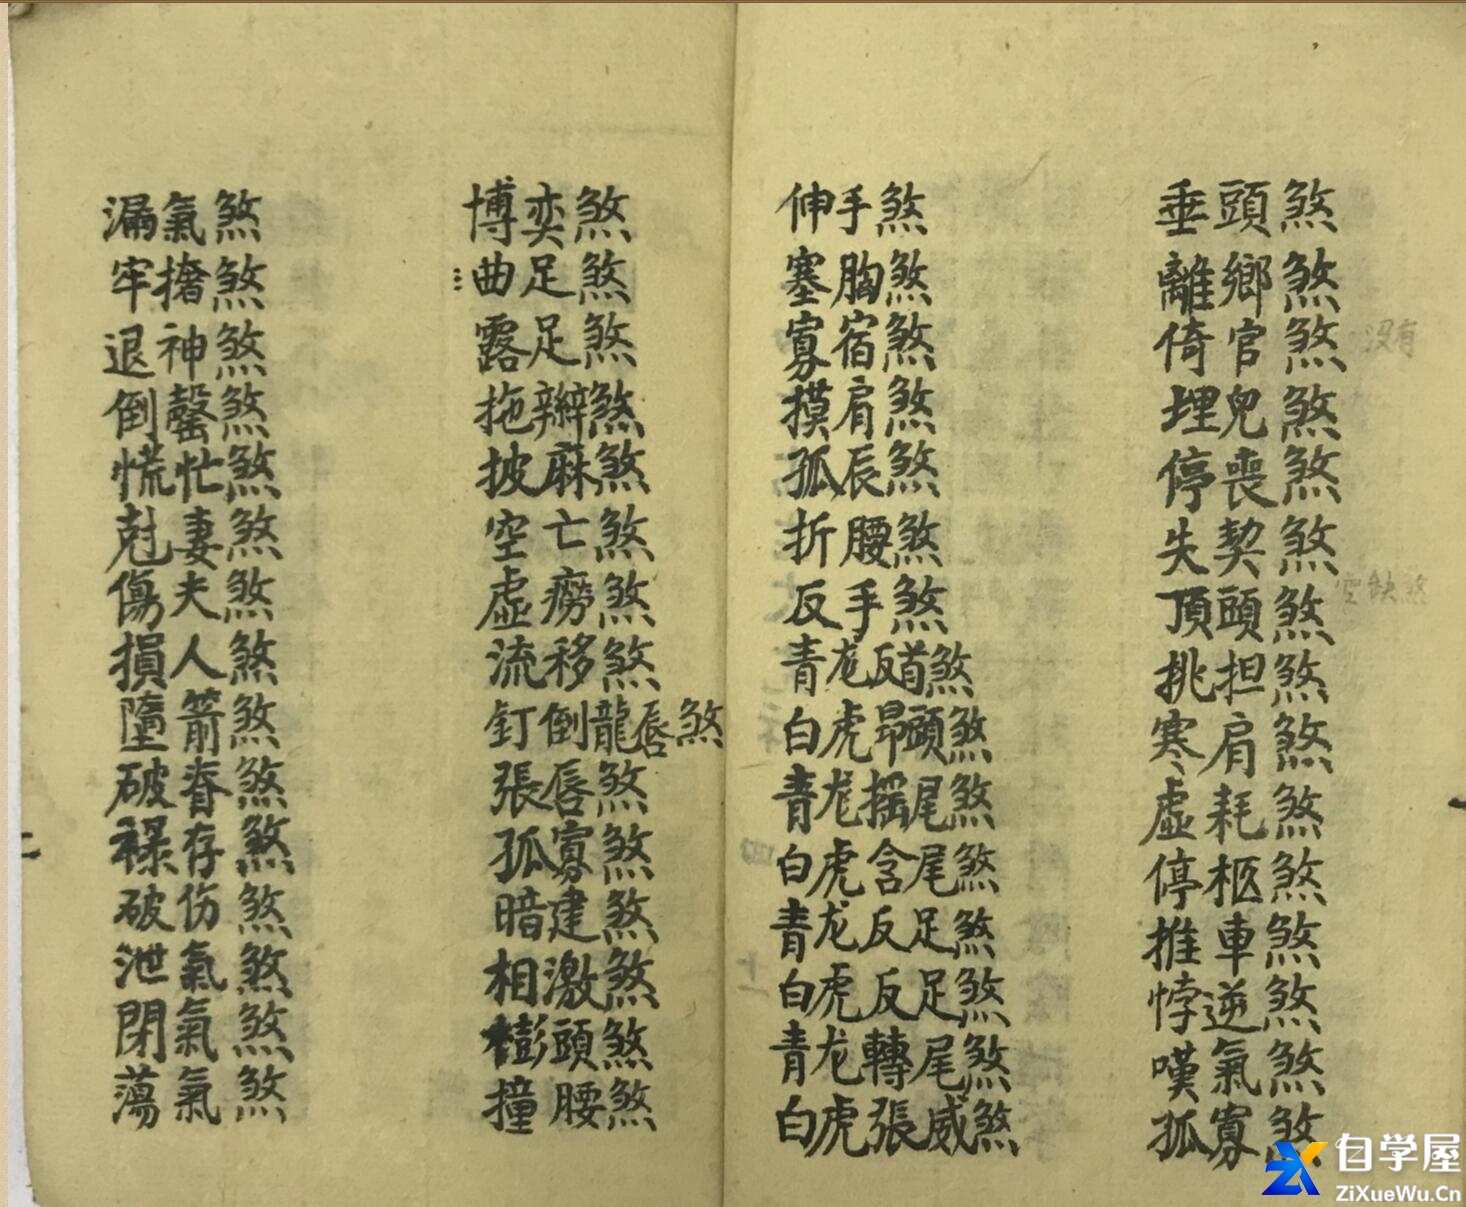 垂頭煞
離鄉煞
倚官煞
没有
埋兒煞
停喪煞
失契煞
頂頭煞
空缺煞
挑担煞
寒肩煞
虛耗煞
停柩煞
推車煞
悖逆煞
嘆氣煞
孤寡煞
伸手煞
塞胸煞
寡宿煞
摸肩煞
孤辰煞
折腰煞
反手煞
青龙反首煞
白虎昂頭煞
青龙摇尾煞
白虎含尾煞
青龙反足煞
白虎反足煞
青龙轉尾煞
白虎張威煞
博奕煞
曲足煞
露足煞
拖辮煞
披麻煞
空亡煞
虛癆煞
流移煞
釘倒龍唇煞
張唇煞
孤寡煞
暗建煞
相激煞
頭煞
撞腰煞
漏氣煞
牢煞
退神煞
倒罄煞
慌忙煞
尅妻煞
傷夫煞
損人煞
墮箭煞
破脊煞
祿存煞
破伤煞
泄氣煞
閉氣煞
蕩氣煞
自学屋
ZiXueWu.Cn